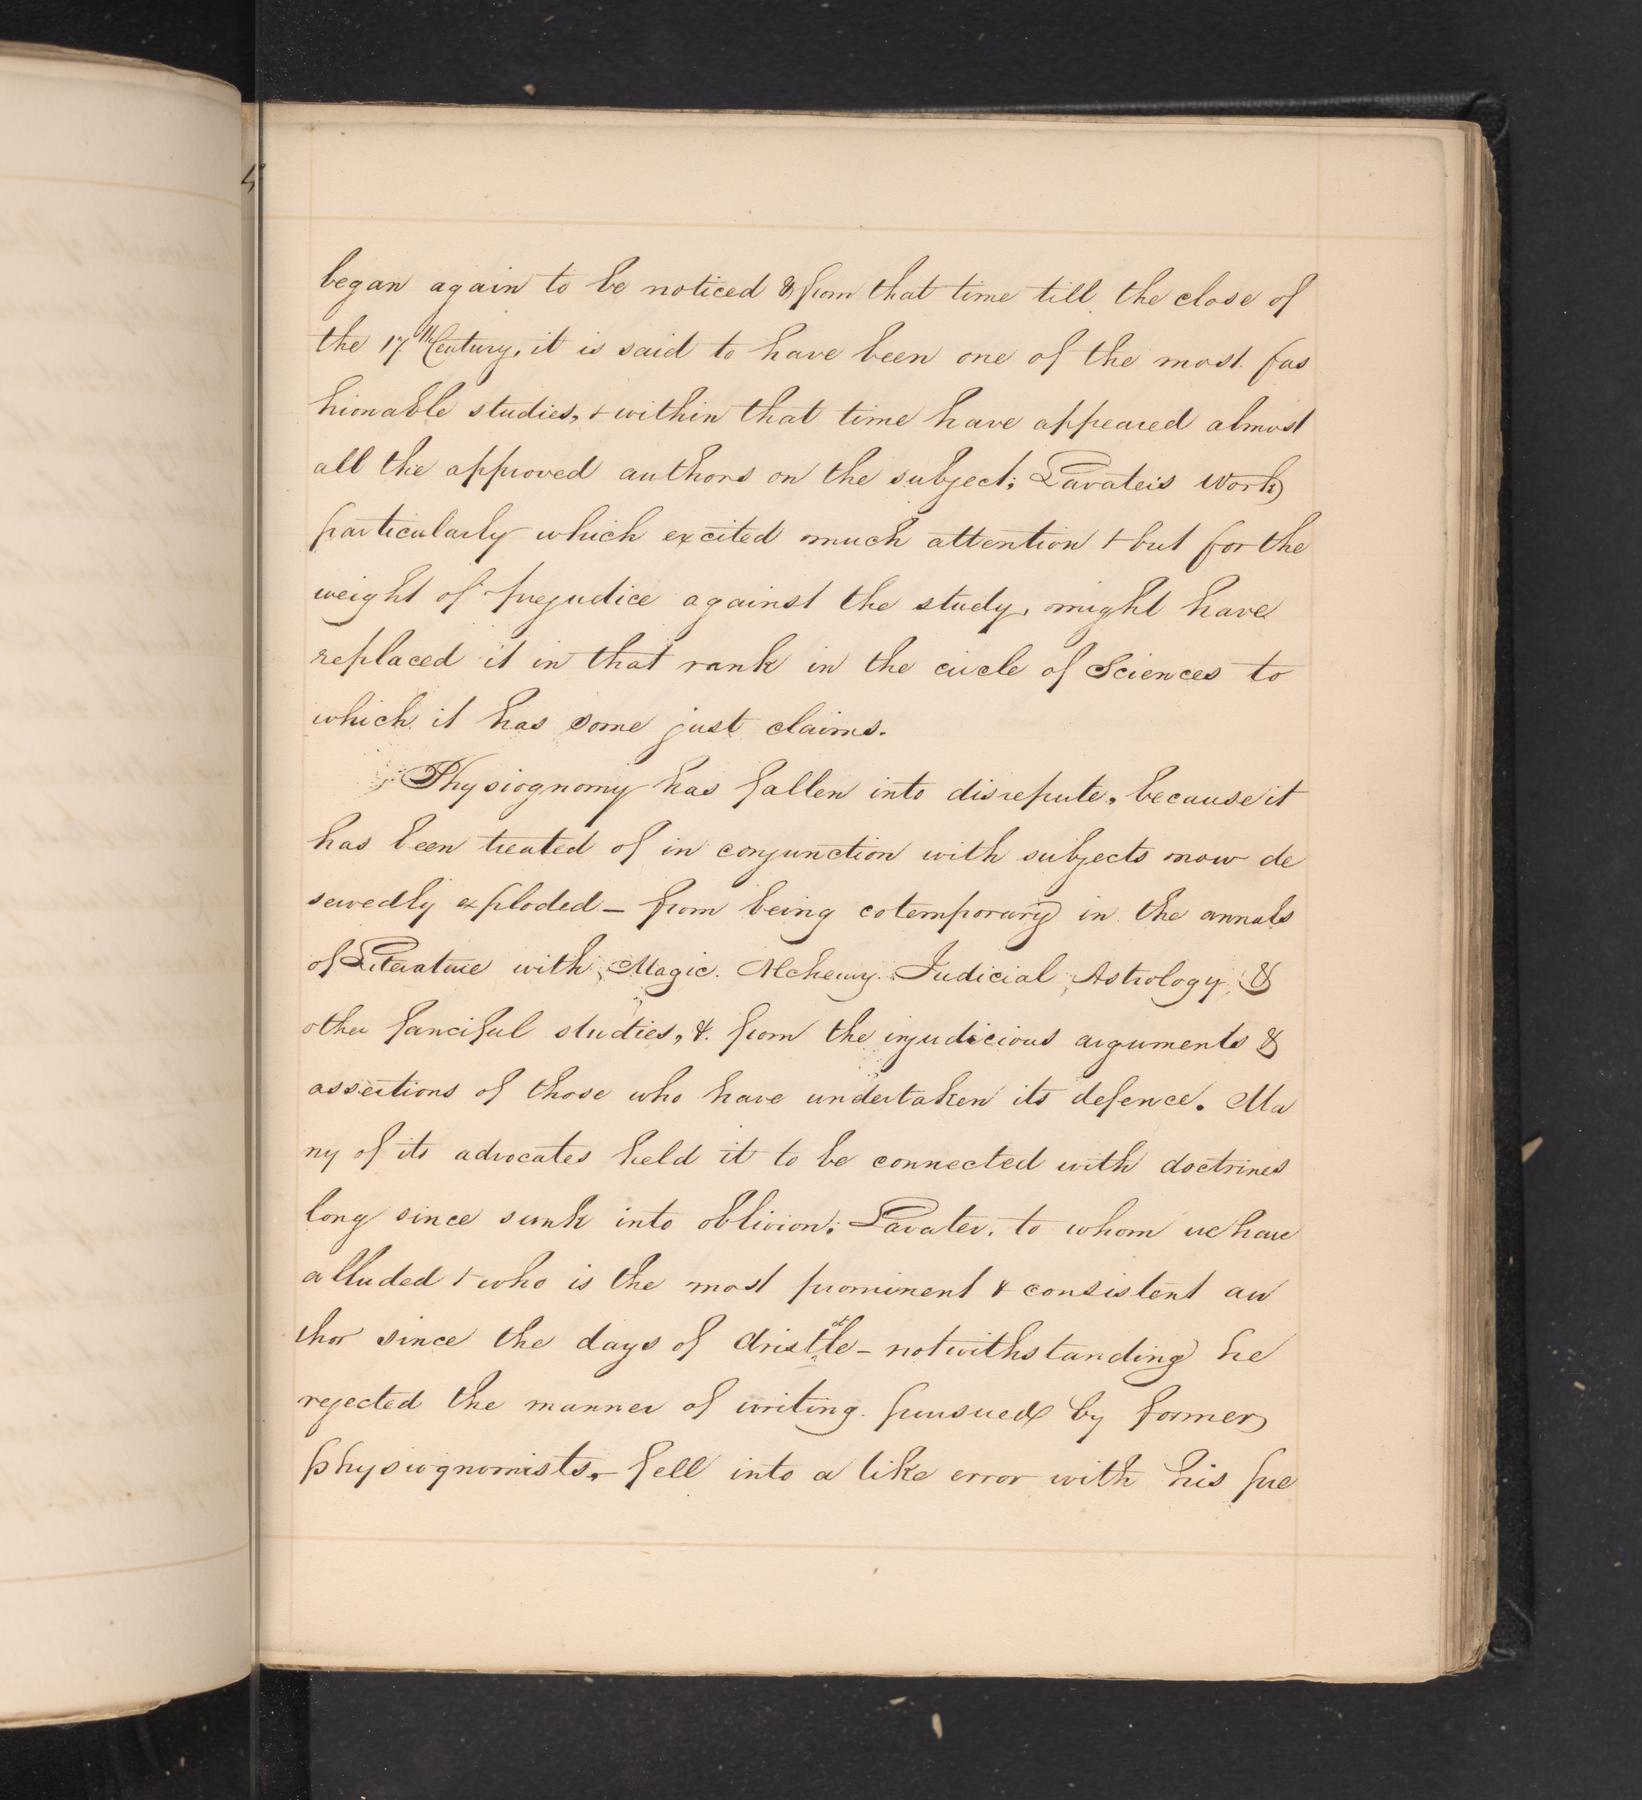 began again to be noticed & from that time till the close of
the 17th Century, it is said to have been one of the most fas
hionable studies, & within that time have appeared almost
all the approved authors on the subject; Lavater's work
particularly which excited much attention & but for the
weight of prejudice against the study, might have
replaced it in that rank in the circle of Sciences to
which it has some just claims.
Physiognomy has fallen into disrepute, because it
has been treated of in conjunction with subjects now de
servedly exploded - from being cotemporary in the annals
of Literature with Magic. Alchemy. Judicial Astrology &
other fanciful studies, & from the injudicious arguments &
assertions of those who have undertaken its defence. Ma
ny of its advocates held it to be connected with doctrines
long since sunk into oblivion; Lavater, to whom we have
alluded & who is the most prominent & consistent au
thor since the days of Aristotle - notwithstanding he
rejected the manner of writing pursued by former
physiognomists, - fell into a like error with his pre